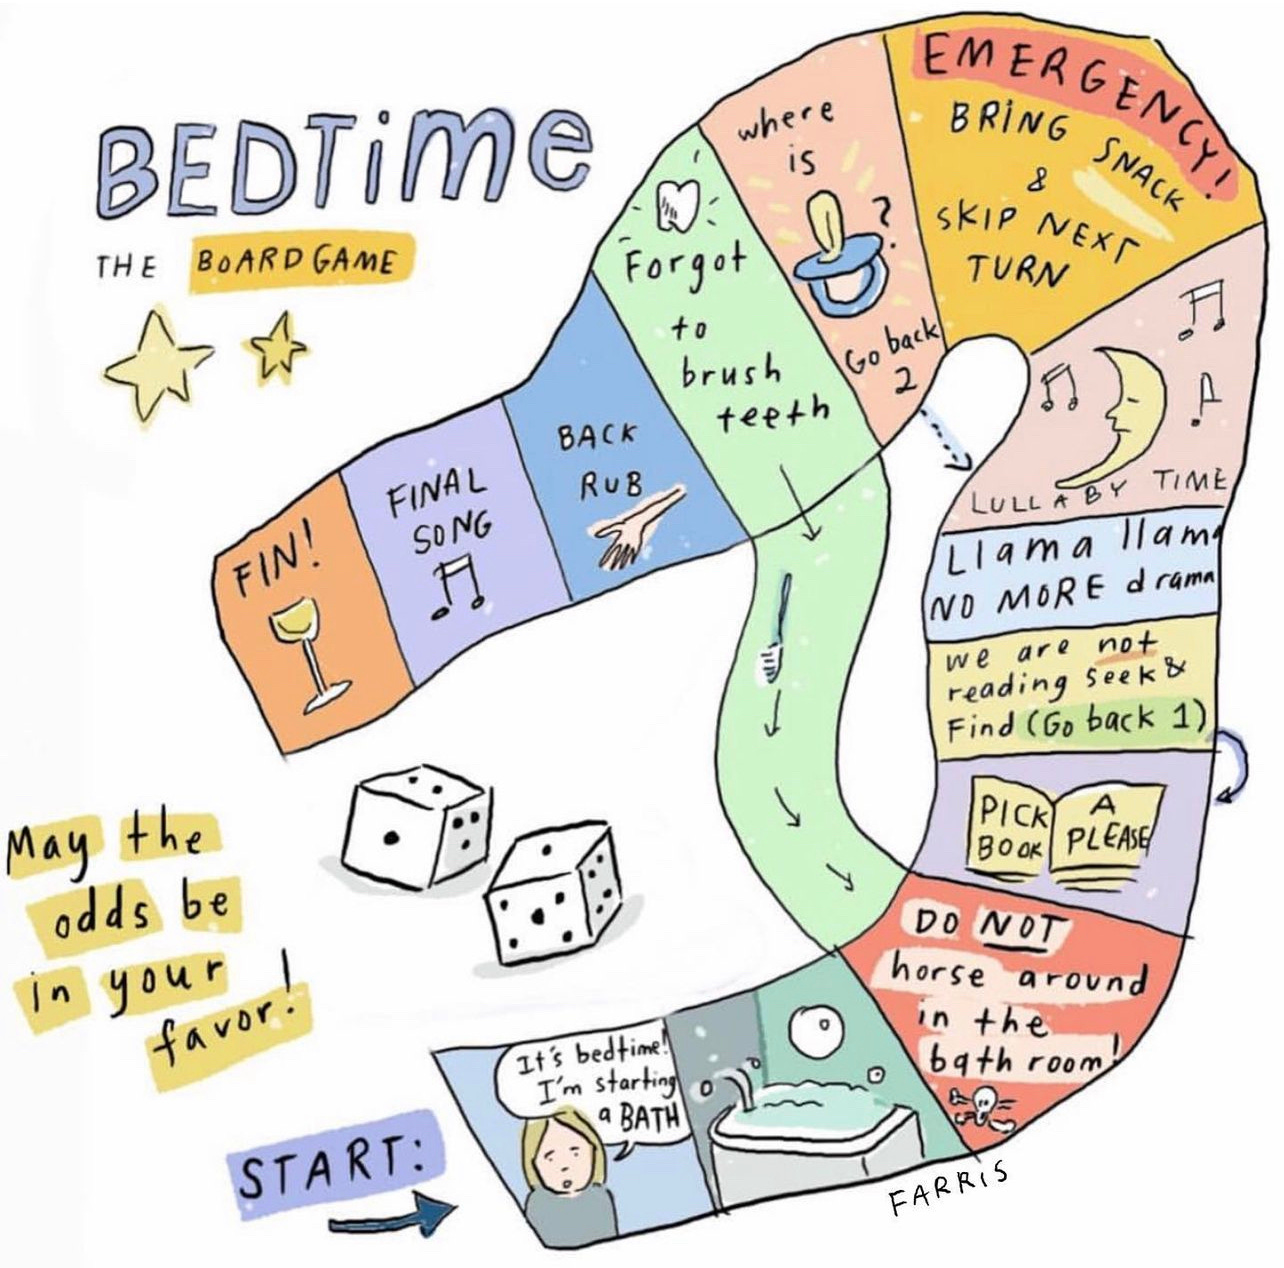 BEDTime
THE BOARD GAME
START:
It's bedtime!
I'm starting
a BATH
DO NOT
horse around
in the
bath room!
PICK
BOOK
A
PLEASE
we are not
reading seek &
Find (Go back 1)
Llama llama
NO MORE drama
LULLABY TIME
EMERGENCY!
BRING SNACK
&
SKIP NEXT
TURN
where
is
?
Go back
2
Forgot
to
brush
teeth
BACK
RUB
FINAL
SONG
FIN!
May the
odds be
in your
favor!
FARRIS